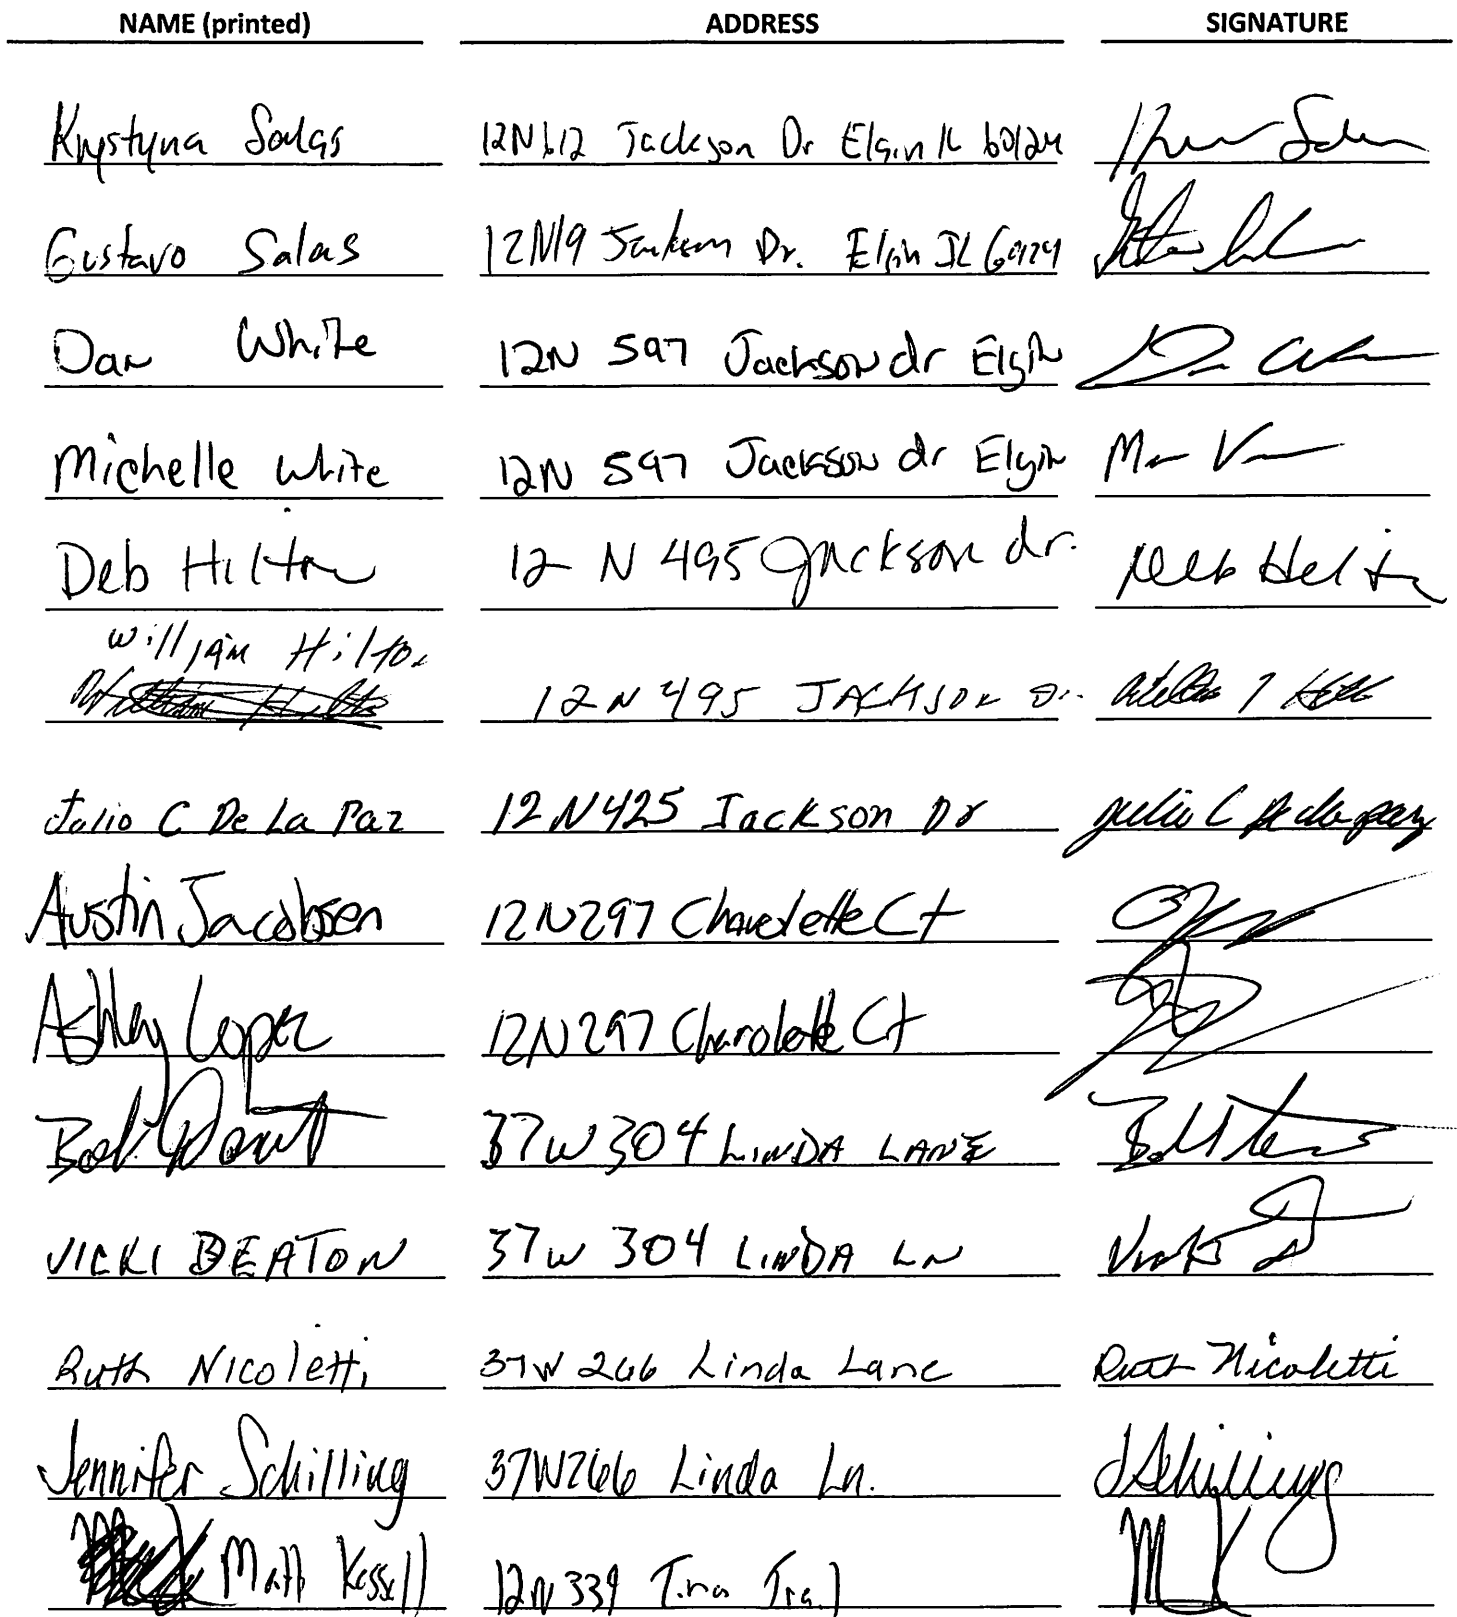 NAME (printed) ADDRESS SIGNATURE
Krystyna Salas 12N612 Jackson Dr Elgin IL 60124
Gustavo Salas 12N19 Jackson Dr. Elgin IL 60124
Dan White 12N 597 Jackson dr Elgin
Michelle White 12N 597 Jackson dr Elgin
Deb Hilton 12 N 495 Jackson dr. Deb Hilton
William Hilton
12 N 495 JACKSON Dr.
Julio C De La Paz 12N425 Jackson Dr Julio C De la paz
Austin Jacobsen 12N297 Ct
Ashley Lopez 12N297 Charolotte Ct
Bob 37W304 LINDA LANE
VICKI DEATON 37W 304 LINDA LN
Ruth Nicoletti 37W 266 Linda Lane Ruth Nicoletti
Jennifer Schilling 37W266 Linda Ln. J Schilling
Matt Kessell 12N339 Tina Trail MK